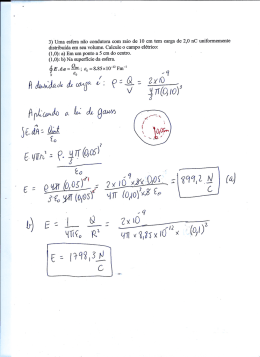 3) Uma esfera não condutora com raio de 10 cm tem carga de 2,0 nC uniformemente
distribuída em seu volume. Calcule o campo elétrico:
(1,0): a) Em um ponto a 5 cm do centro.
(1,0): b) Na superfície da esfera.
∮E.da = Qint/ε₀ ; ε₀ = 8,85×10⁻¹² Fm⁻¹
A densidade de carga é: ρ = Q/V = 2×10⁻⁹ / (4/3 π(0,10)³)
Aplicando a lei de gauss
∮E dA = Qint/ε₀
E 4πr² = ρ. 4/3 π(0,05)³ / ε₀
= 899,2 N/C (a)
b) E = 1/4πε₀ Q/R² = 2×10⁻⁹ / (4π × 8,85×10⁻¹² × (0,1)²)
E = 1798,3 N/C